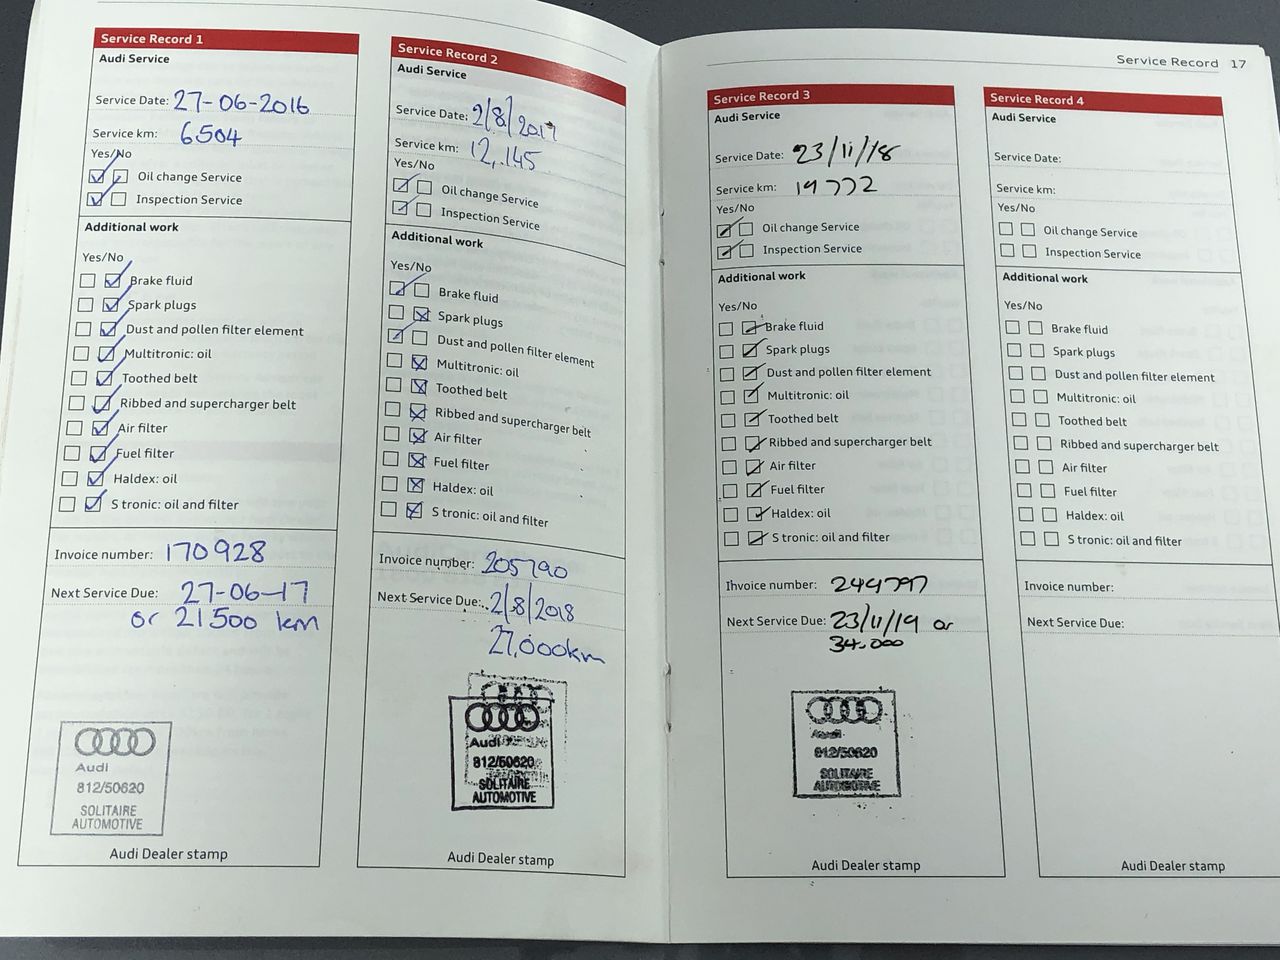 Service Record 1
Audi Service
Service Date: 27-06-2016
Service km: 6504
Yes/No
Oil change Service
Inspection Service
Additional work
Yes/No
Brake fluid
Spark plugs
Dust and pollen filter element
Multitronic: oil
Toothed belt
Ribbed and supercharger belt
Air filter
Fuel filter
Haldex: oil
S tronic: oil and filter
Invoice number: 170928
Next Service Due: 27-06-17
or 21500 km
Audi
812/50620
SOLITAIRE
AUTOMOTIVE
Audi Dealer stamp
Service Record 2
Audi Service
Service Date: 2/8/2017
Service km: 12,145
Yes/No
Oil change Service
Inspection Service
Additional work
Yes/No
Brake fluid
Spark plugs
Dust and pollen filter element
Multitronic: oil
Toothed belt
Ribbed and supercharger belt
Air filter
Fuel filter
Haldex: oil
S tronic: oil and filter
Invoice number: 205790
Next Service Due: 2/8/2018
27,000km
Audi
812/50620
SOLITAIRE
AUTOMOTIVE
Audi Dealer stamp
Service Record 17
Service Record 3
Audi Service
Service Date: 23/11/18
Service km: 19772
Yes/No
Oil change Service
Inspection Service
Additional work
Yes/No
Brake fluid
Spark plugs
Dust and pollen filter element
Multitronic: oil
Toothed belt
Ribbed and supercharger belt
Air filter
Fuel filter
Haldex: oil
S tronic: oil and filter
Invoice number: 244797
Next Service Due: 23/11/19 or
34.000
Audi
812/50620
SOLITAIRE
AUTOMOTIVE
Audi Dealer stamp
Service Record 4
Audi Service
Service Date:
Service km:
Yes/No
Oil change Service
Inspection Service
Additional work
Yes/No
Brake fluid
Spark plugs
Dust and pollen filter element
Multitronic: oil
Toothed belt
Ribbed and supercharger belt
Air filter
Fuel filter
Haldex: oil
S tronic: oil and filter
Invoice number:
Next Service Due:
Audi Dealer stamp